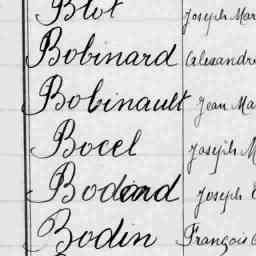 Blot Joseph Mar
Bobinard Alexandre
Bobinault Jean Ma
Bocel Joseph M
Bodard Joseph
Bodin François